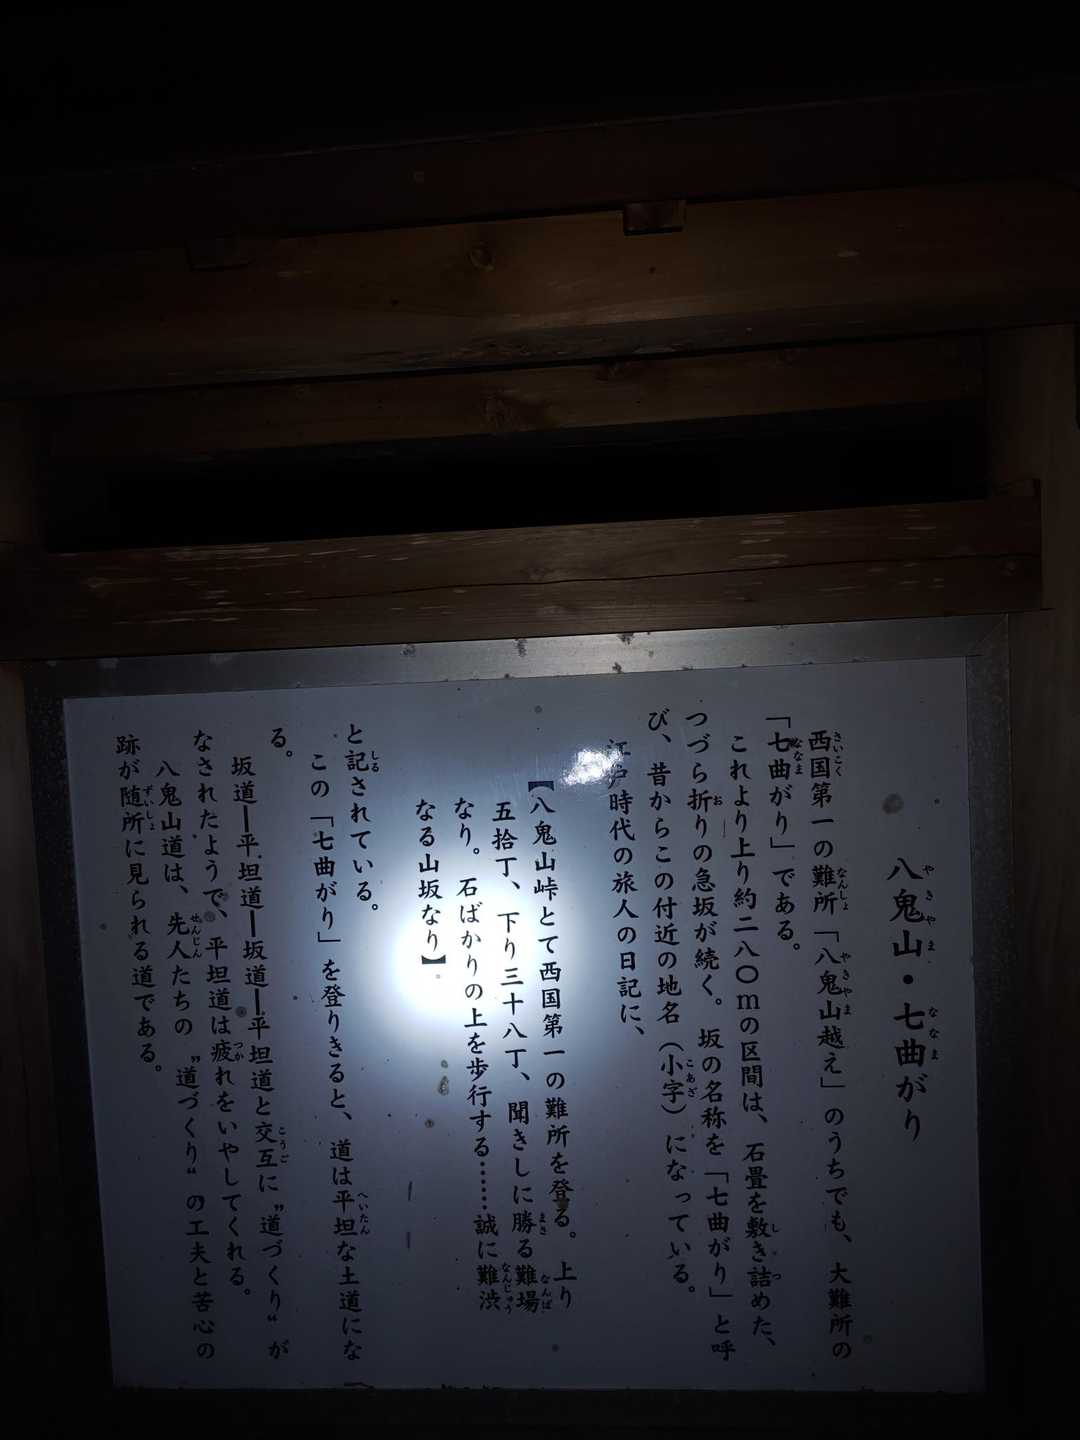 八鬼山・七曲がり
西国第一の難所「八鬼山越え」のうちでも、大難所の
「七曲がり」である。
これより上り約二八〇mの区間は、石畳を敷き詰めた、
つづら折りの急坂が続く。坂の名称を「七曲がり」と呼
び、昔からこの付近の地名(小字)になっている。
江戸時代の旅人の日記に、
【八鬼山峠とて西国第一の難所を登る。上り
五拾丁、下り三十八丁、聞きしに勝る難場
なり。石ばかりの上を歩行する……誠に難渋
なる山坂なり】
と記されている。
この「七曲がり」を登りきると、道は平坦な土道にな
る。
坂道―平坦道―坂道―平坦道と交互に〝道づくり〟が
なされたようで、平坦道は疲れをいやしてくれる。
八鬼山道は、先人たちの〝道づくり〟の工夫と苦心の
跡が随所に見られる道である。